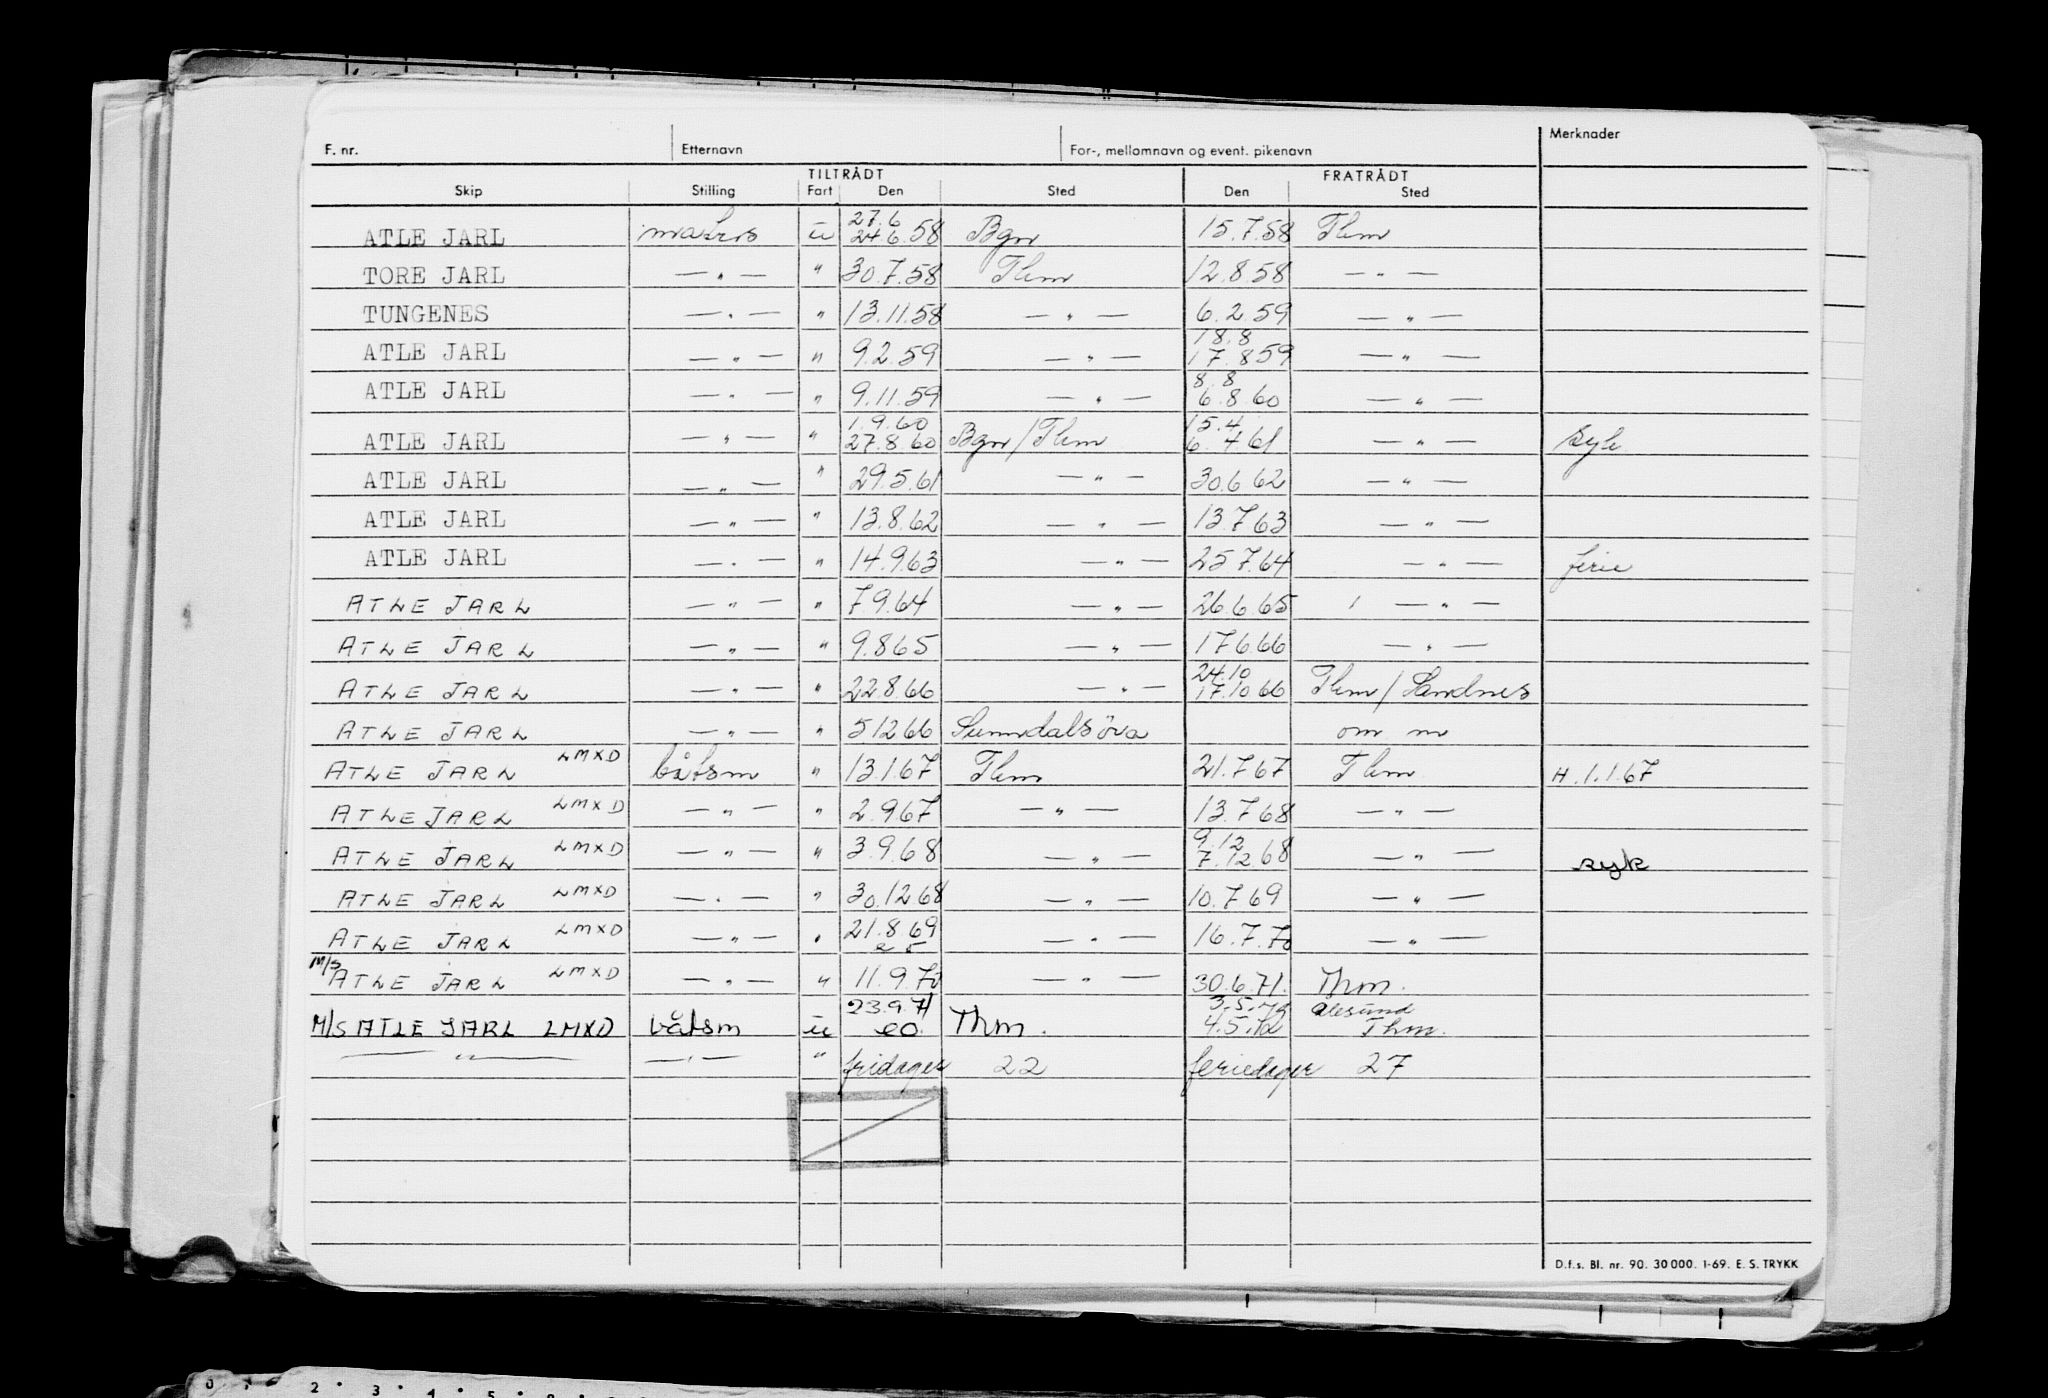 F. nr. Etternavn For-, mellomnavn og event. pikenavn Merknader
TILTRÅDT FRATRÅDT
Skip Stilling Fart Den Sted Den Sted
27.6
ATLE JARL matros u 24.6.58 Bgn 15.7.58 Thm
TORE JARL — " — " 30.7.58 Thm 12.8.58 — " —
TUNGENES — " — " 13.11.58 — " — 6.2.59 — " —
18.8
ATLE JARL — " — " 9.2.59 — " — 17.8.59 — " —
8.8
ATLE JARL — " — " 9.11.59 — " — 6.8.60 — " —
1.9.60 15.4
ATLE JARL — " — " 27.8.60 Bgn/Thm 6.4.61 — " — syk
ATLE JARL — " — " 29.5.61 — " — 30.6.62 — " —
ATLE JARL — " — " 13.8.62 — " — 13.7.63 — " —
ATLE JARL — " — " 14.9.63 — " — 25.7.64 — " — ferie
ATLE JARL — " — " 7.9.64 — " — 26.6.65 — " —
ATLE JARL — " — " 9.8.65 — " — 17.6.66 — " —
24.10
ATLE JARL — " — " 22.8.66 — " — 17.10.66 Thm/Sandnes
ATLE JARL — " — " 5.12.66 Sunndalsöra om m
ATLE JARL LMXD båtsm " 13.1.67 Thm 21.7.67 Thm H.1.1.67
ATLE JARL LMXD — " — " 2.9.67 — " — 13.7.68 — " —
9.12
ATLE JARL LMXD — " — " 3.9.68 — " — 7.12.68 — " — syk
ATLE JARL LMXD — " — " 30.12.68 — " — 10.7.69 — " —
ATLE JARL LMXD — " — " 21.8.69 — " — 16.7.70 — " —
M/S ATLE JARL LMXD — " — " 11.9.70 — " — 30.6.71. Thm.
23.9.71 3.5.72 Ålesund
M/S ATLE JARL LMXD båtsm u Thm. 4.5.72 Thm.
— " — — " — " fridager 22 feriedager 27
D.f.s. Bl. nr. 90. 30 000. 1-69. E. S. TRYKK
0 1 2 3 4 5